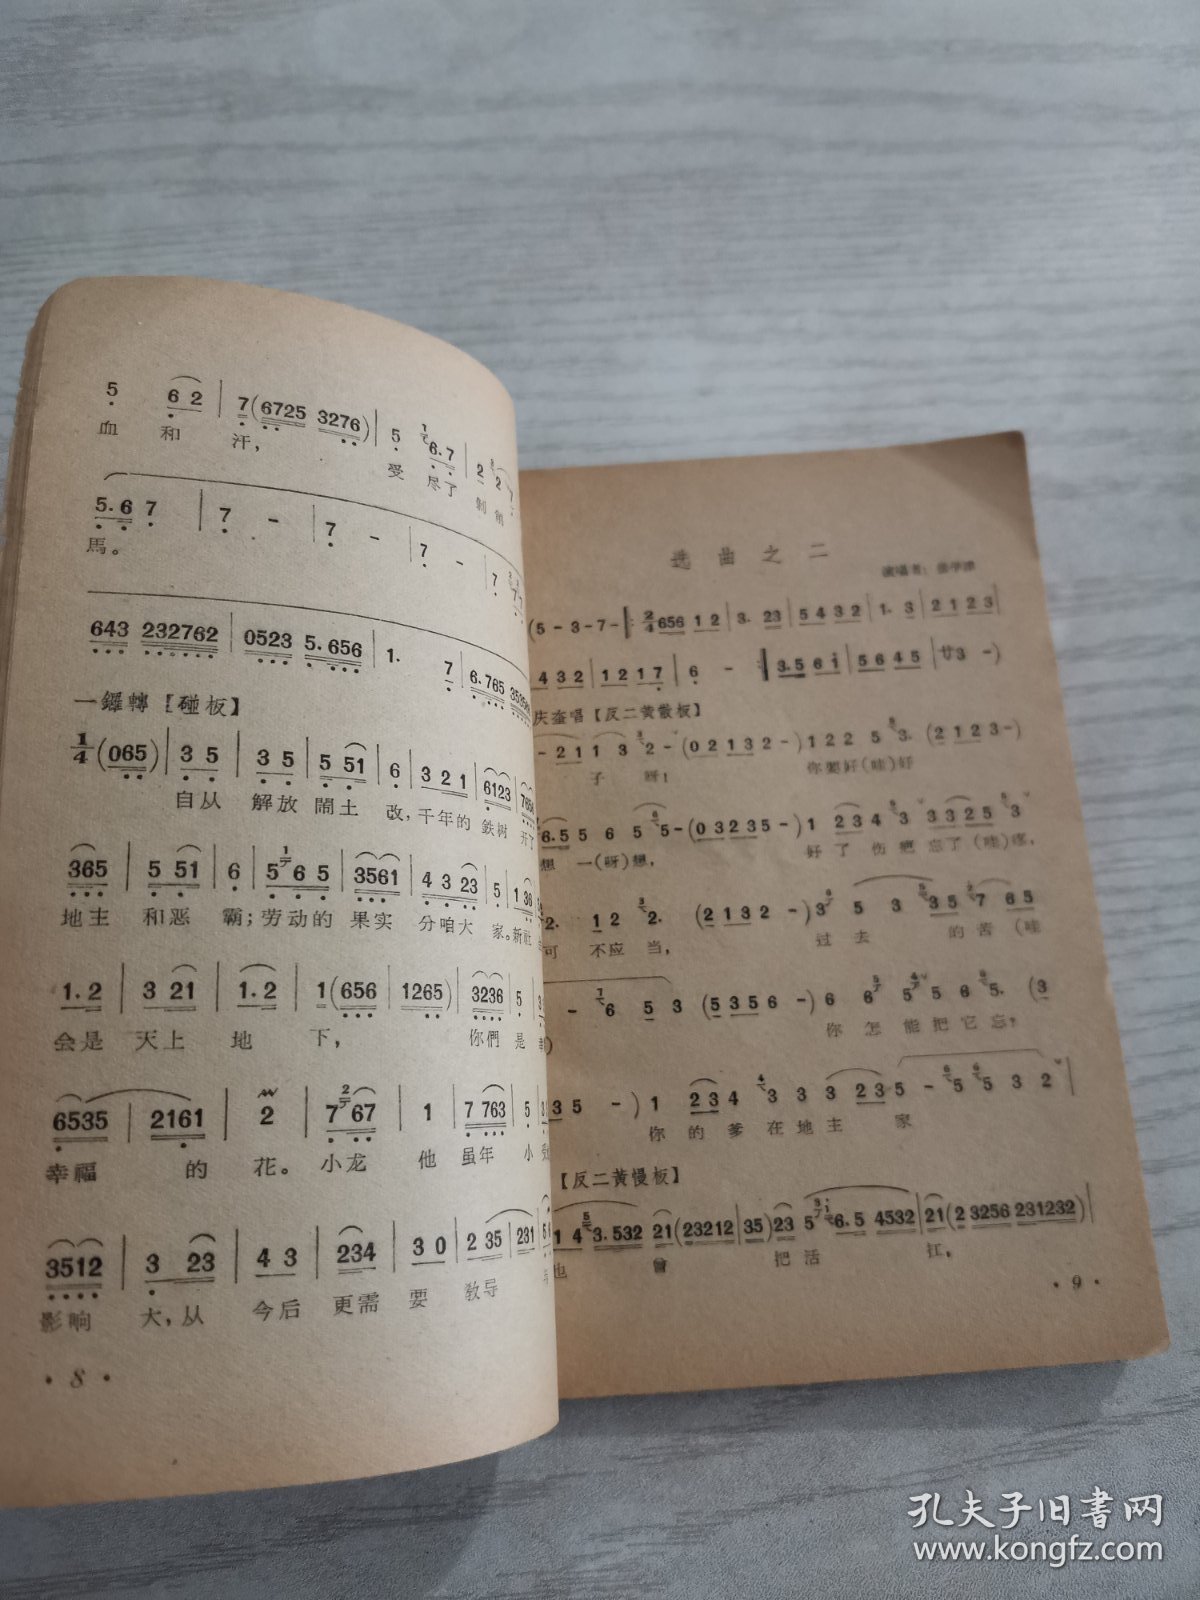 5 6 2 | 7 (6725 3276) | 5 6.7 | 2 2 7
血 和 汗, 受 尽了 剝 削
5.6 7 | 7 - | 7 - | 7 - | 7
馬。
643 232762 | 0523 5.656 | 1. 7 | 6.765
一鑼轉【碰板】
1/4 (065) | 3 5 | 3 5 | 5 51 | 6 | 3 2 1 | 6123
自从 解放 閙土 改, 千年的 鉄树 开了
365 | 5 51 | 6 | 5 6 5 | 3561 | 4 3 23 | 5 | 1 36
地主 和恶 霸; 劳动的 果实 分咱大 家。新社
1.2 | 3 21 | 1.2 | 1 (656 | 1265) | 3236 | 5
会是 天上 地 下, 你們 是
6535 | 2161 | 2 | 7 67 | 1 | 7 763 | 5
幸福 的 花。 小龙 他 虽年 小
3512 | 3 23 | 4 3 | 234 | 3 0 | 2 35 | 231
影响 大, 从 今后 更需 要 敎导
· 8 ·
选曲之二
演唱者:
(5 - 3 - 7 - 2/4 656 1 2 | 3. 23 | 5 4 3 2 | 1. 3 | 2 1 2 3
4 3 2 | 1 2 1 7 | 6 - 3.5 6 i | 5 6 4 5 | 廿3 -)
唱【反二黄散板】
- 2 1 1 3 2 - (0 2 1 3 2 -) 1 2 2 5 3. (2 1 2 3 -)
子 呀! 你想好(哇)好
6.5 5 6 5 5 - (0 3 2 3 5 -) 1 2 3 4 3 3 3 2 5 3
想 一(呀)想, 好了 伤疤 忘了(哇)疼,
2. 1 2 2. (2 1 3 2 -) 3 5 3 3 5 7 6 5
可 不应 当, 过 去 的 苦 (哇
- 6 5 3 (5 3 5 6 -) 6 6 5 5 6 5. (3
) 你 怎 能 把 它 忘?
3 5 -) 1 2 3 4 3 3 3 2 3 5 - 5 5 3 2
你 的 爹 在 地 主 家
【反二黄慢板】
1 4 3.532 21 (23212 | 35) 23 5 6.5 4532 | 21 (2 3256 231232)
也 曾 把 活 扛,
· 9 ·
孔夫子旧书网
www.kongfz.com